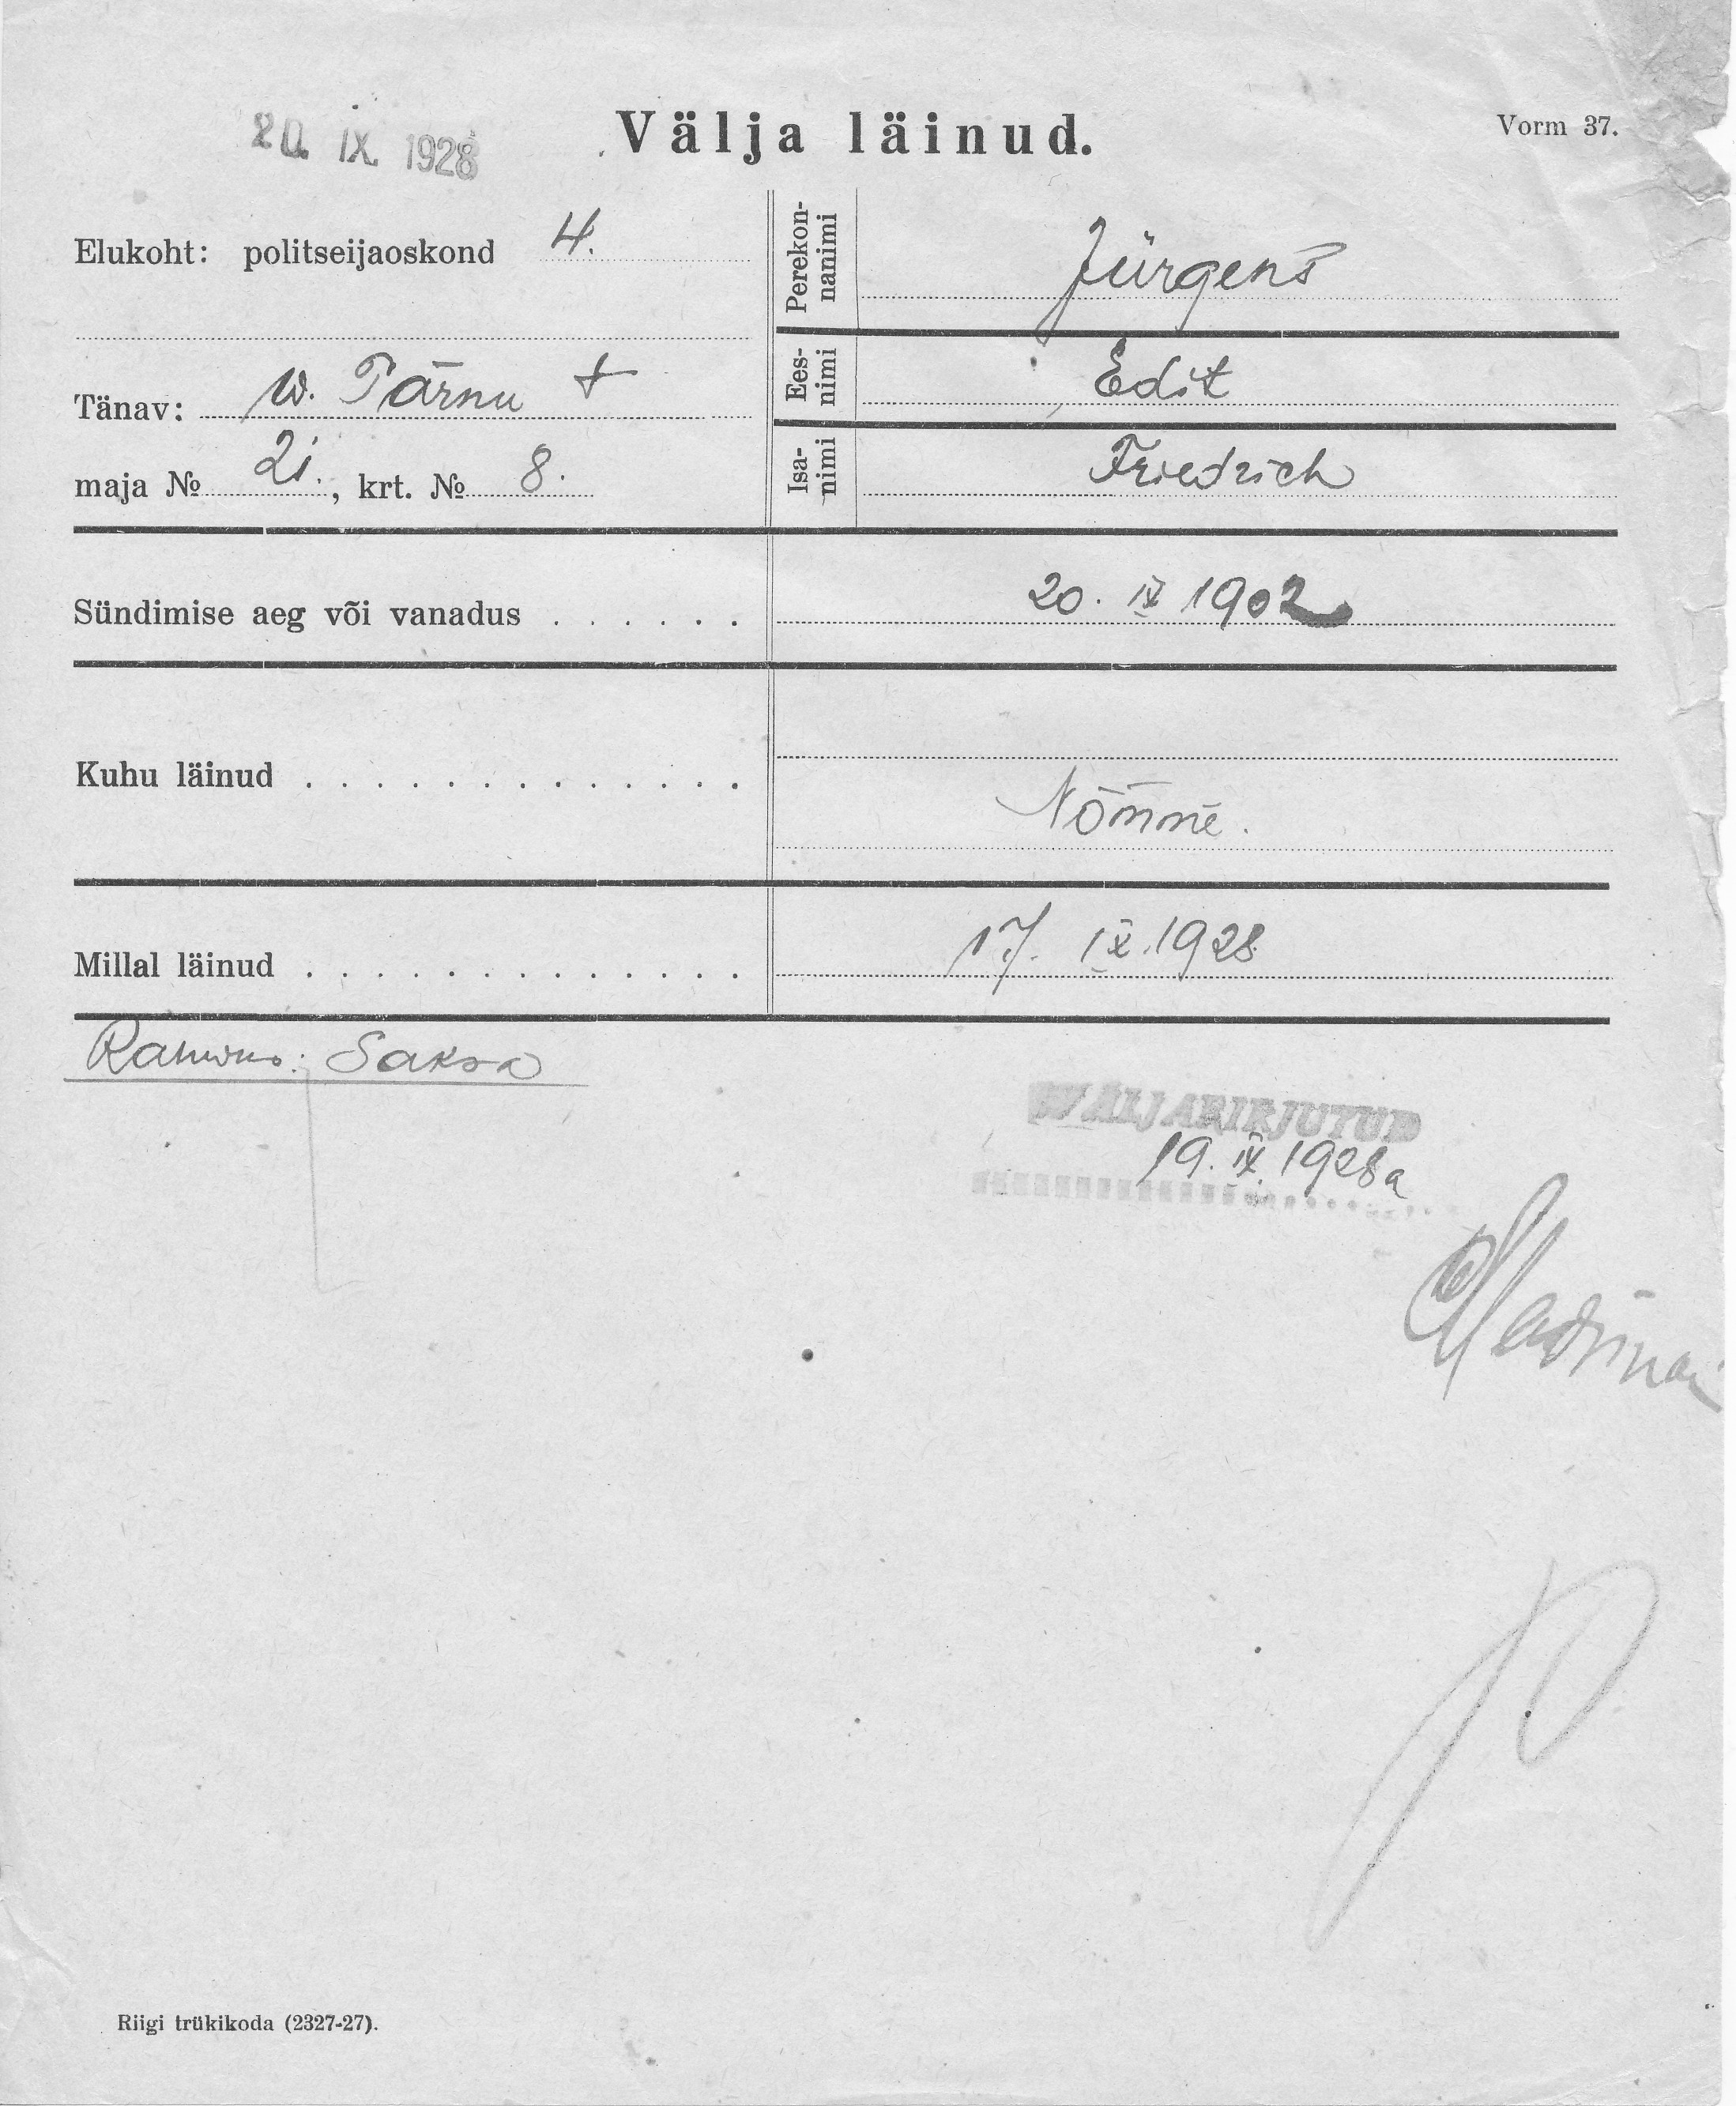 20. IX. 1928
Välja läinud.
Vorm 37.
Elukoht: politseijaoskond 4.
Perekon-
nanimi
Jürgens
Tänav: w. Pärnu
Ees-
nimi
Edit
maja № 21., krt. № 8.
Isa-
nimi
Friedrich
Sündimise aeg või vanadus . . . . . .
20. IX 1902
Kuhu läinud . . . . . . . . . . . . .
Nõmme.
Millal läinud . . . . . . . . . . . . .
17. IX.1928
Rahwus: Saksa
WÄLJAKIRJUTUD
19. IX. 1928 a
Riigi trükikoda (2327-27).